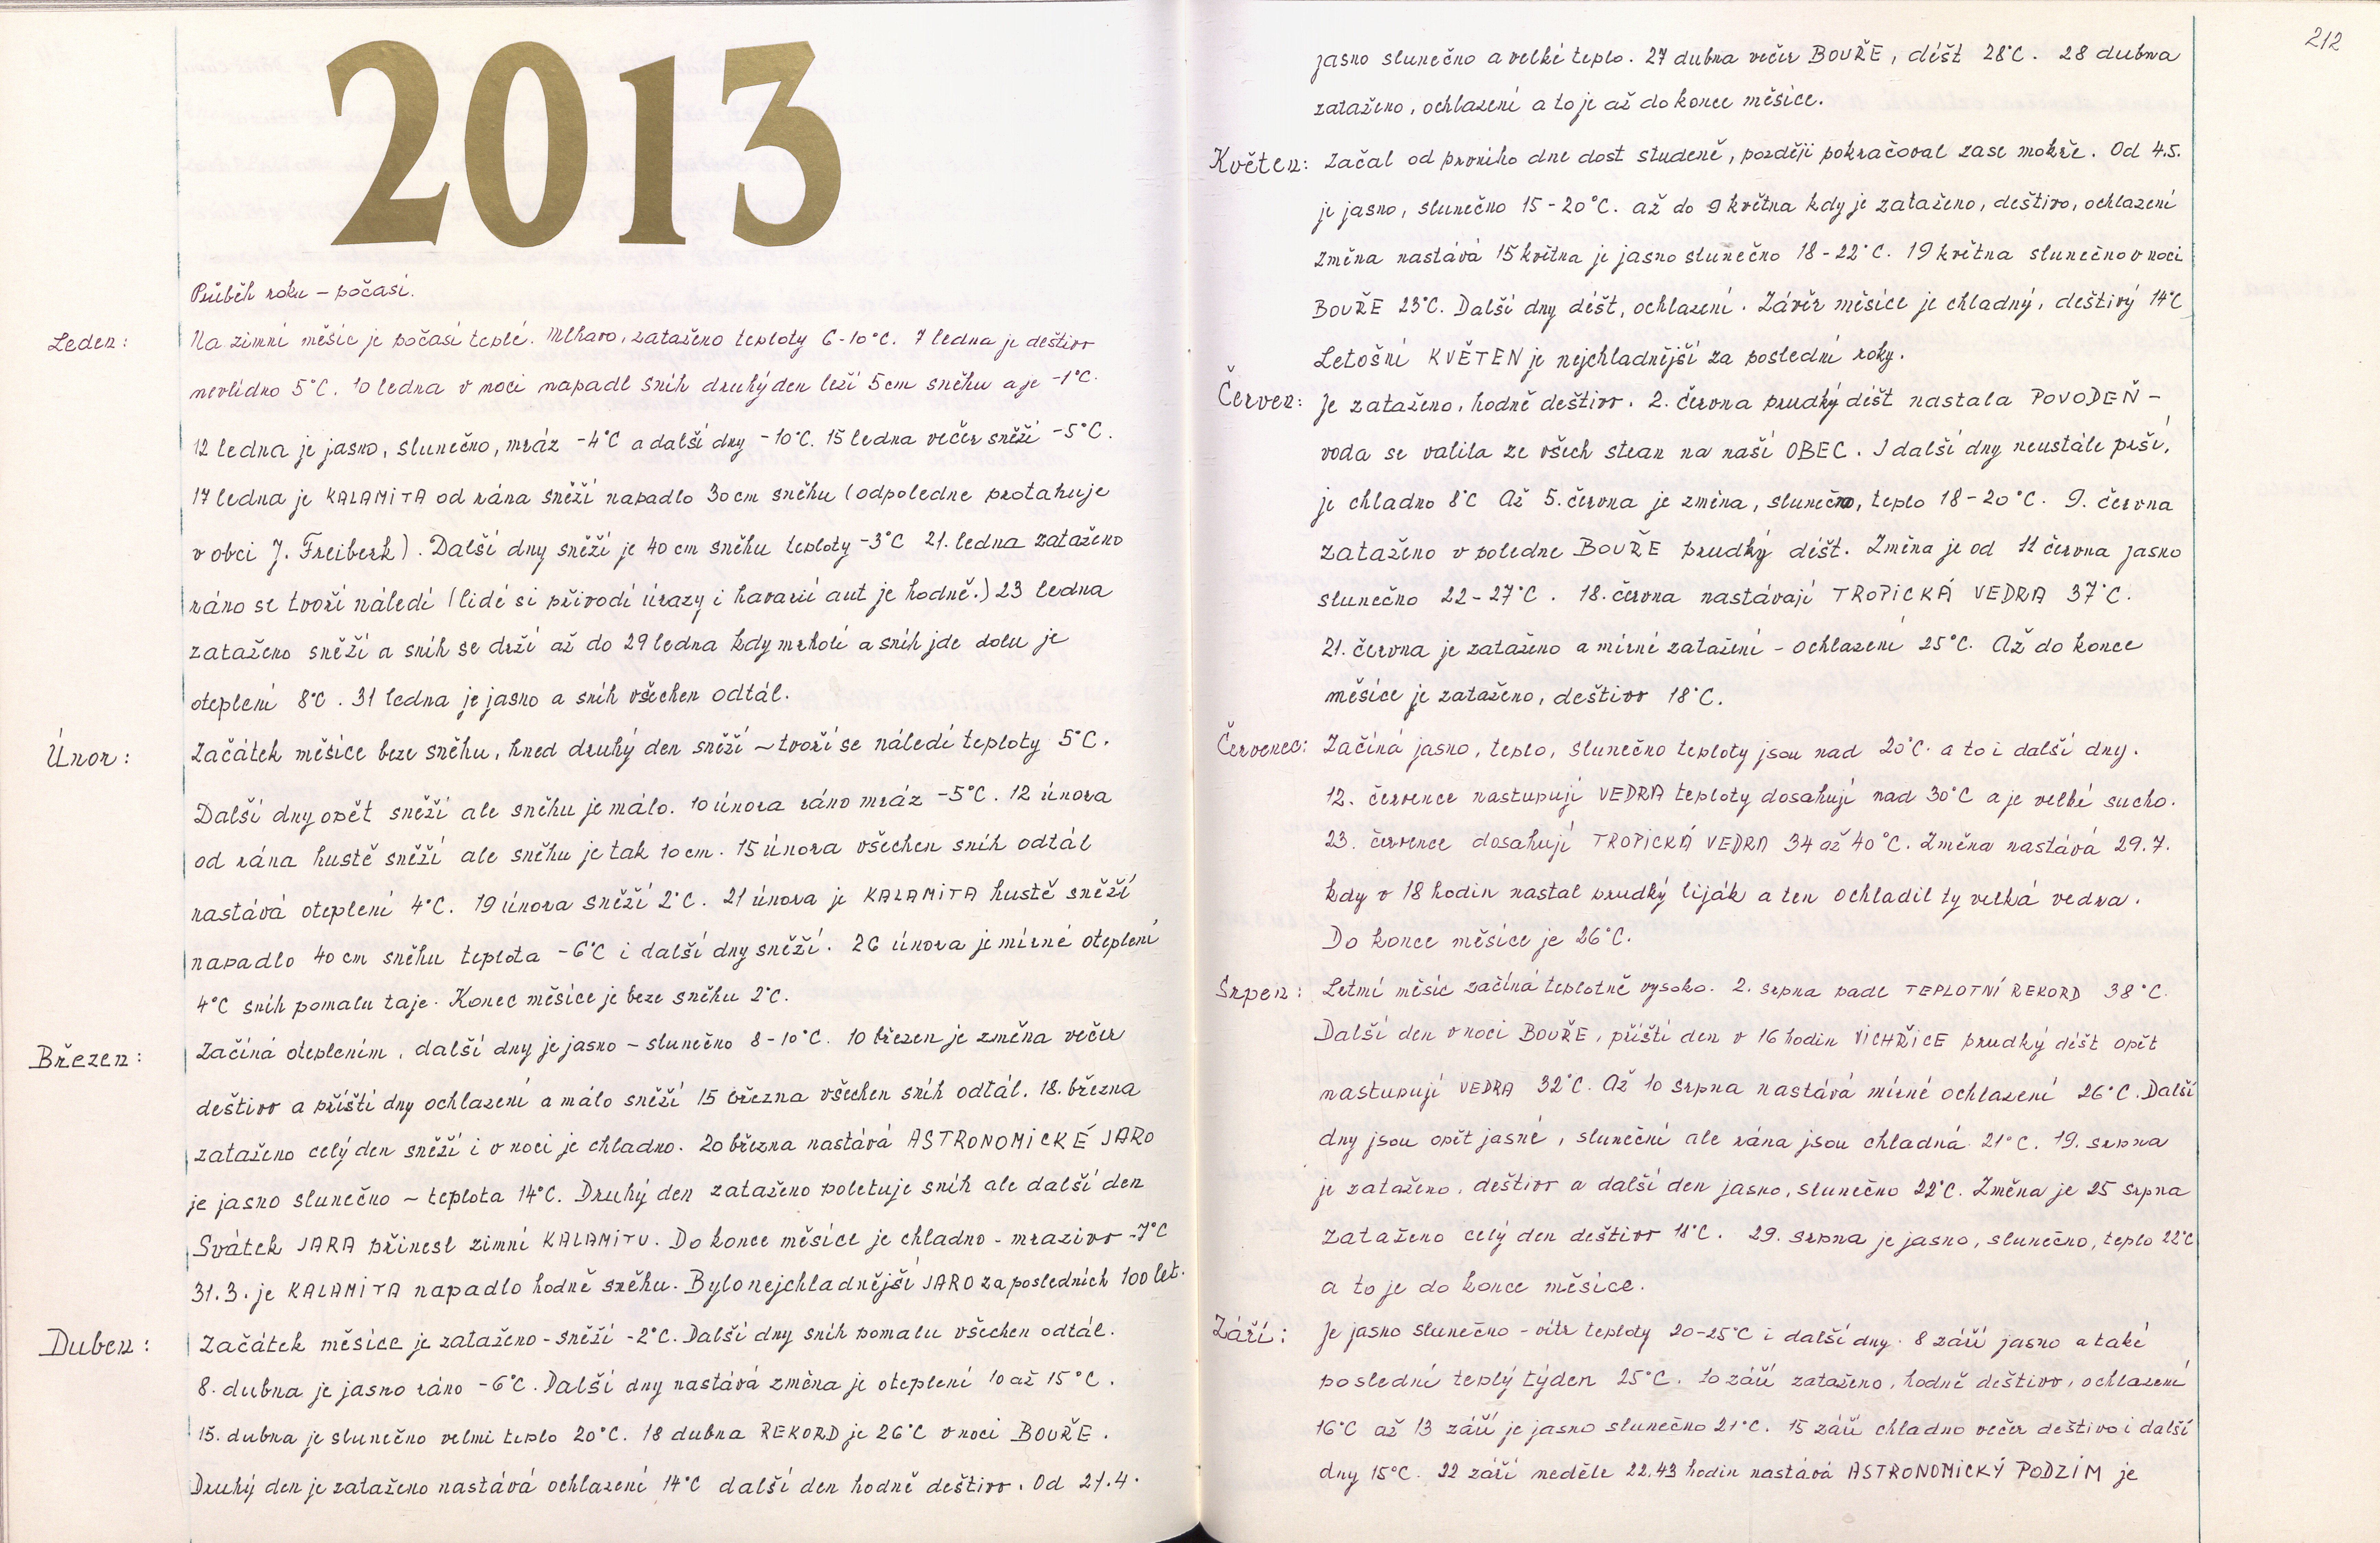 2013
Průběh roku – počasí.
Leden: Na zimní měsíc je počasí teplé. Mlhavo, zataženo teploty 6-10°C. 7 ledna je deštivo
nevlídno 5°C. 10 ledna v noci napadl sníh druhý den leží 5cm sněhu a je -1°C.
12 ledna je jasno, slunečno, mráz -4°C a další dny -10°C. 15 ledna večer sněží -5°C.
17 ledna je KALAMITA od rána sněží napadlo 30 cm sněhu (odpoledne protahuje
v obci J. Freiberk). Další dny sněží je 40 cm sněhu teploty -3°C 21. ledna zataženo
ráno se tvoří náledí (lidé si přivodí úrazy i havarií aut je hodně.) 23 ledna
zataženo sněží a sníh se drží až do 29 ledna kdy mrholí a sníh jde dolu je
oteplení 8°C. 31 ledna je jasno a sníh všechen odtál.
Únor: Začátek měsíce beze sněhu, hned druhý den sněží ~ tvoří se náledí teploty 5°C.
Další dny opět sněží ale sněhu je málo. 10 února ráno mráz -5°C. 12 února
od rána hustě sněží ale sněhu je tak 10cm. 15 února všechen sníh odtál
nastává oteplení 4°C. 19 února sněží 2°C. 21 února je KALAMITA hustě sněží
napadlo 40 cm sněhu teplota -6°C i další dny sněží. 26 února je mírné oteplení
4°C sníh pomalu taje. Konec měsíce je beze sněhu 2°C.
Březen: Začíná oteplením, další dny je jasno – slunečno 8-10°C. 10 březen je změna večer
deštivo a příští dny ochlazení a málo sněží 15 března všechen sníh odtál. 18. března
zataženo celý den sněží i v noci je chladno. 20 března nastává ASTRONOMICKÉ JARO
je jasno slunečno ~ teplota 14°C. Druhý den zataženo poletuje sníh ale další den
Svátek JARA přinesl zimní KALAMITU. Do konce měsíce je chladno - mrazivo -7°C
31.3. je KALAMITA napadlo hodně sněhu. Bylo nejchladnější JARO za posledních 100 let.
Duben: Začátek měsíce je zataženo - sněží -2°C. Další dny sníh pomalu všechen odtál.
8. dubna je jasno ráno -6°C. Další dny nastává změna je oteplení 10 až 15°C.
15. dubna je slunečno velmi teplo 20°C. 18 dubna REKORD je 26°C v noci BOUŘE.
Druhý den je zataženo nastává ochlazení 14°C další den hodně deštivo. Od 21.4.
212
jasno slunečno a velké teplo. 27 dubna večer BOUŘE, déšt 28°C. 28 dubna
zataženo, ochlazení a to je až do konce měsíce.
Květen: Začal od prvního dne dost studeně, později pokračoval zase mokře. Od 4.5.
je jasno, slunečno 15-20°C. až do 9 května kdy je zataženo, deštivo, ochlazení
změna nastává 15 května je jasno slunečno 18-22°C. 19 května slunečno v noci
BOUŘE 23°C. Další dny déšt, ochlazení. Závěr měsíce je chladný, deštivý 14°C
Letošní KVĚTEN je nejchladnější za poslední roky.
Červen: Je zataženo, hodně deštivo. 2. června prudký déšt nastala POVODEŇ –
voda se valila ze všech stran na naší OBEC. I další dny neustále prší,
je chladno 8°C Až 5. června je změna, slunečno, teplo 18-20°C. 9. června
zataženo v poledne BOUŘE prudký déšt. Změna je od 11 června jasno
slunečno 22-27°C. 18. června nastávají TROPICKÁ VEDRA 37°C.
21. června je zataženo a mírné zatažení - ochlazení 25°C. Až do konce
měsíce je zataženo, deštivo 18°C.
Červenec: Začíná jasno, teplo, slunečno teploty jsou nad 20°C. a to i další dny.
12. července nastupují VEDRA teploty dosahují nad 30°C a je velké sucho.
23. července dosahují TROPICKÁ VEDRA 34 až 40°C. Změna nastává 29.7.
kdy v 18 hodin nastal prudký liják a ten ochladil ty velká vedra.
Do konce měsíce je 26°C.
Srpen: Letmí měsíc začíná teplotně vysoko. 2. srpna padl TEPLOTNÍ REKORD 38°C.
Další den v noci BOUŘE, příští den v 16 hodin VICHŘICE prudký déšt opět
nastupují VEDRA 32°C. Až 10 srpna nastává mírné ochlazení 26°C. Další
dny jsou opět jasné, sluneční ale rána jsou chladná 21°C. 19. srpna
je zataženo, deštivo a další den jasno, slunečno 22°C. Změna je 25 srpna
zataženo celý den deštivo 18°C. 29. srpna je jasno, slunečno, teplo 22°C
a to je do konce měsíce.
Září: Je jasno slunečno - vítr teploty 20-25°C i další dny. 8 září jasno a také
poslední teplý týden 25°C. 10 září zataženo, hodně deštivo, ochlazení
16°C až 13 září je jasno slunečno 21°C. 15 září chladno večer deštivo i další
dny 15°C. 22 září neděle 22.43 hodin nastává ASTRONOMICKÝ PODZIM je